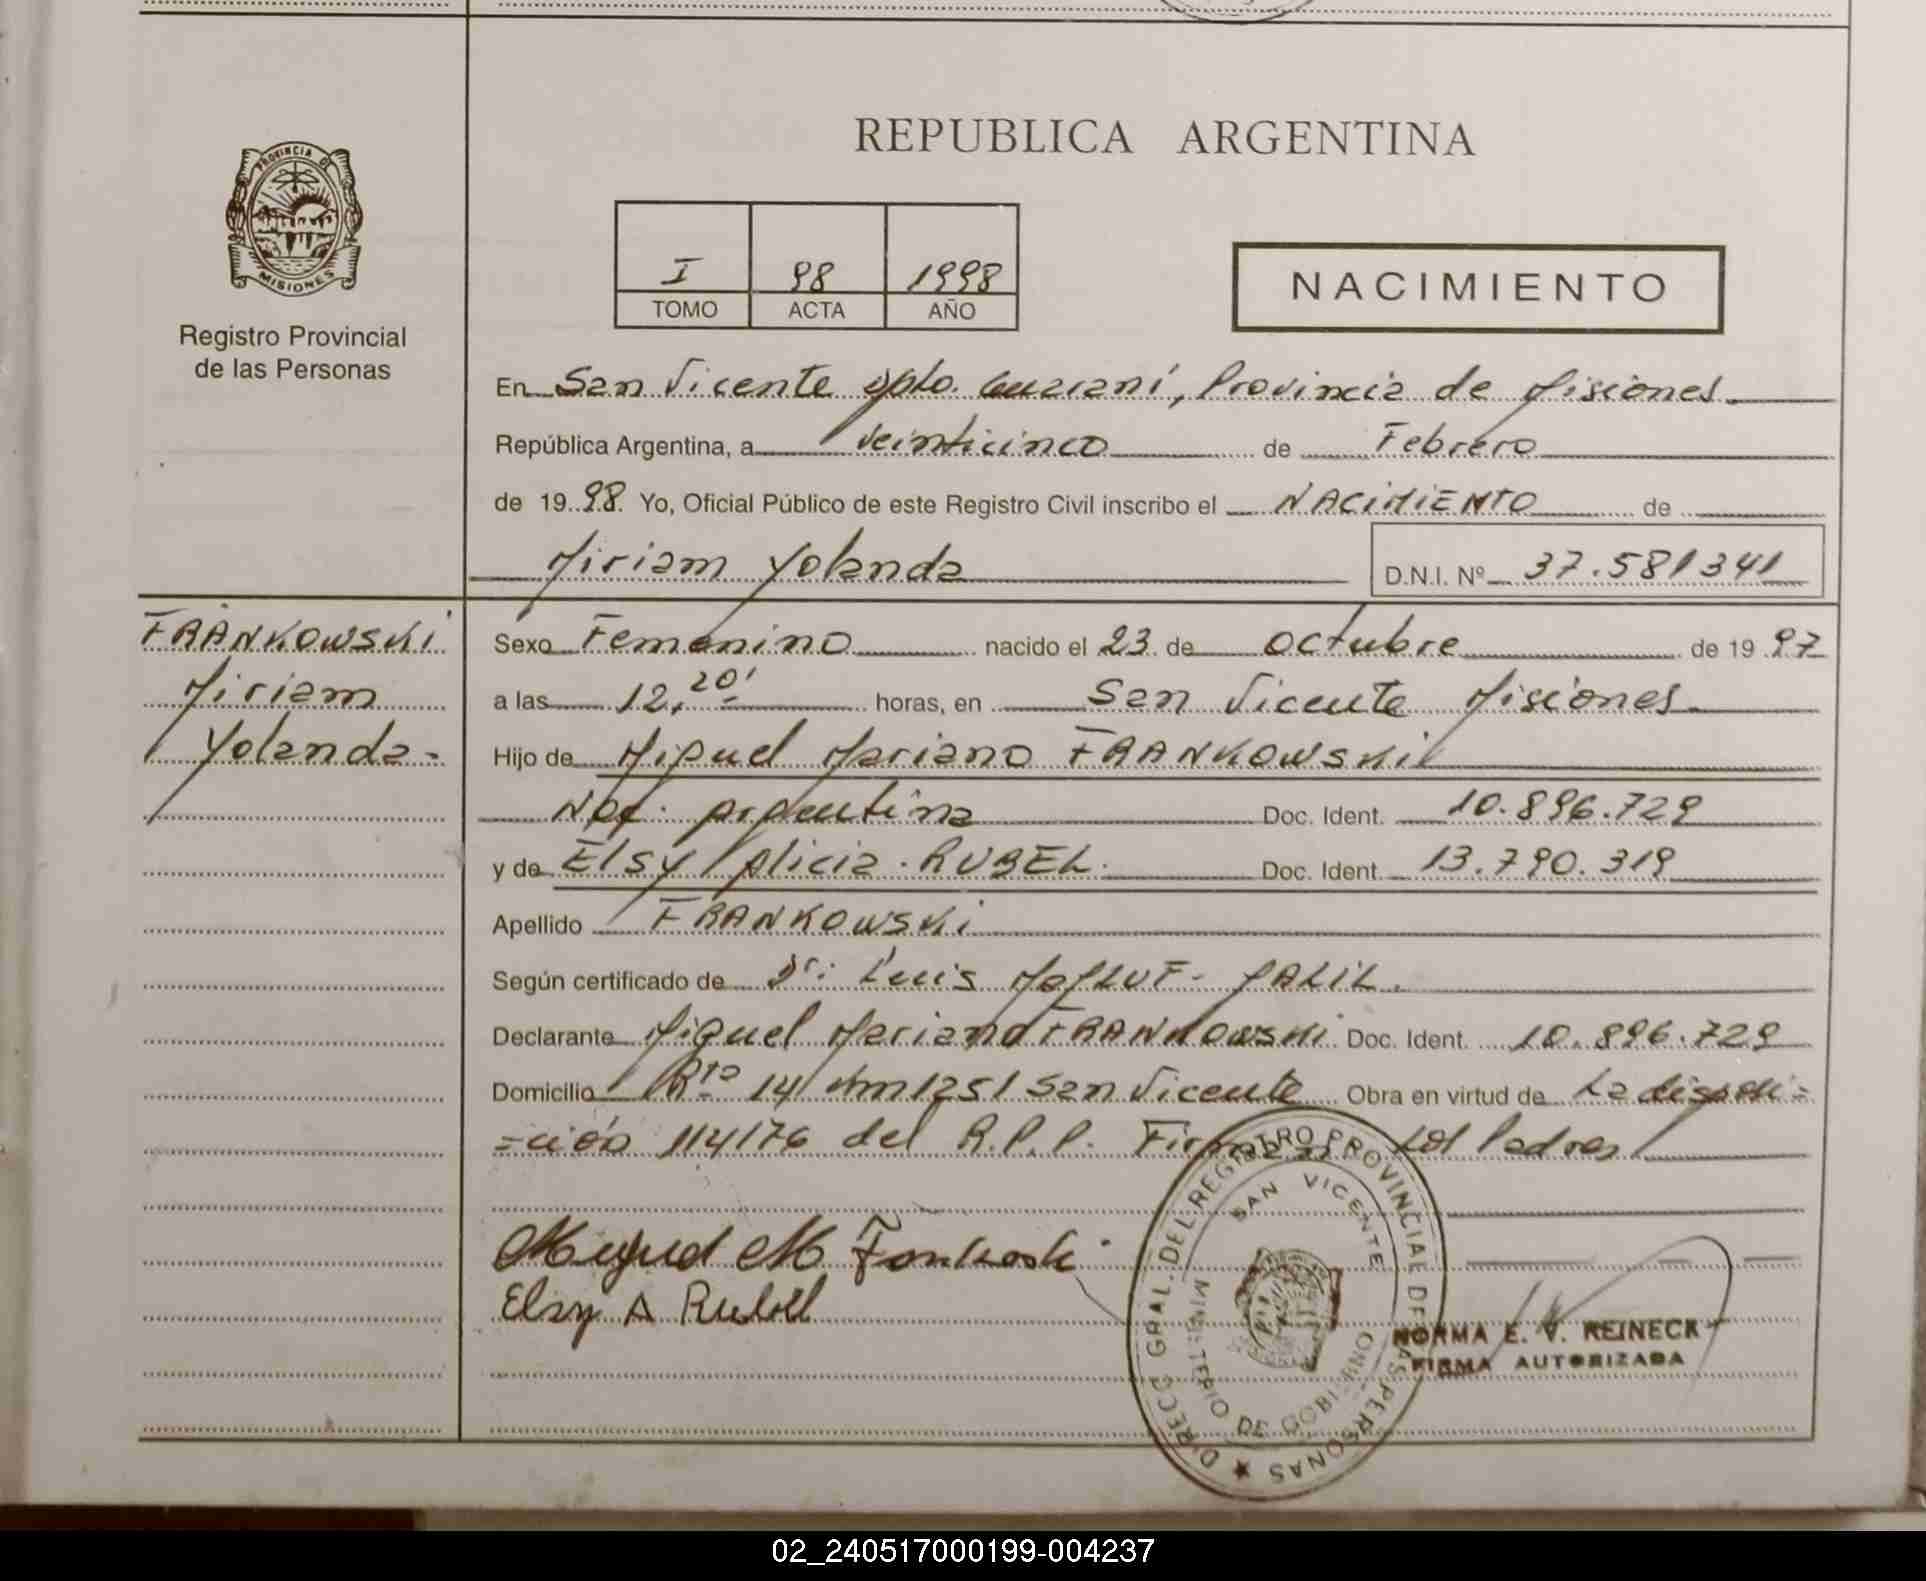 REPUBLICA ARGENTINA
PROVINCIA DE
MISIONES
Registro Provincial
de las Personas
I 98 1998
TOMO ACTA AÑO
NACIMIENTO
En San Vicente Dpto. Guarani, Provincia de Misiones
República Argentina, a veinticinco de Febrero
de 19 98 Yo, Oficial Público de este Registro Civil inscribo el NACIMIENTO de
Miriam Yolanda D.N.I. Nº 37.581341
FRANKOWSKI
Miriam
Yolanda-
Sexo Femenino nacido el 23 de octubre de 19 97
a las 12,20' horas, en San Vicente Misiones
Hijo de Miguel Mariano FRANKOWSKI
Nac. argentina Doc. Ident. 10.896.729
y de Elsy Alicia RUBEL Doc. Ident. 13.790.319
Apellido FRANKOWSKI
Según certificado de Dr: Luis JALIL
Declarante Miguel Mariano FRANKOWSKI Doc. Ident. 10.896.729
Domicilio Rta 14 Km 1251 San Vicente Obra en virtud de La disposi=
=ción 114/76 del R.P.P. Firman Los Padres
Miguel M Frankoski
Elsy A Rubel
DIRECC GRAL. DEL REGISTRO PROVINCIAL DE LAS PERSONAS
SAN VICENTE
MINISTERIO DE GOBIERNO
NORMA E. V. REINECK
FIRMA AUTORIZADA
02_240517000199-004237